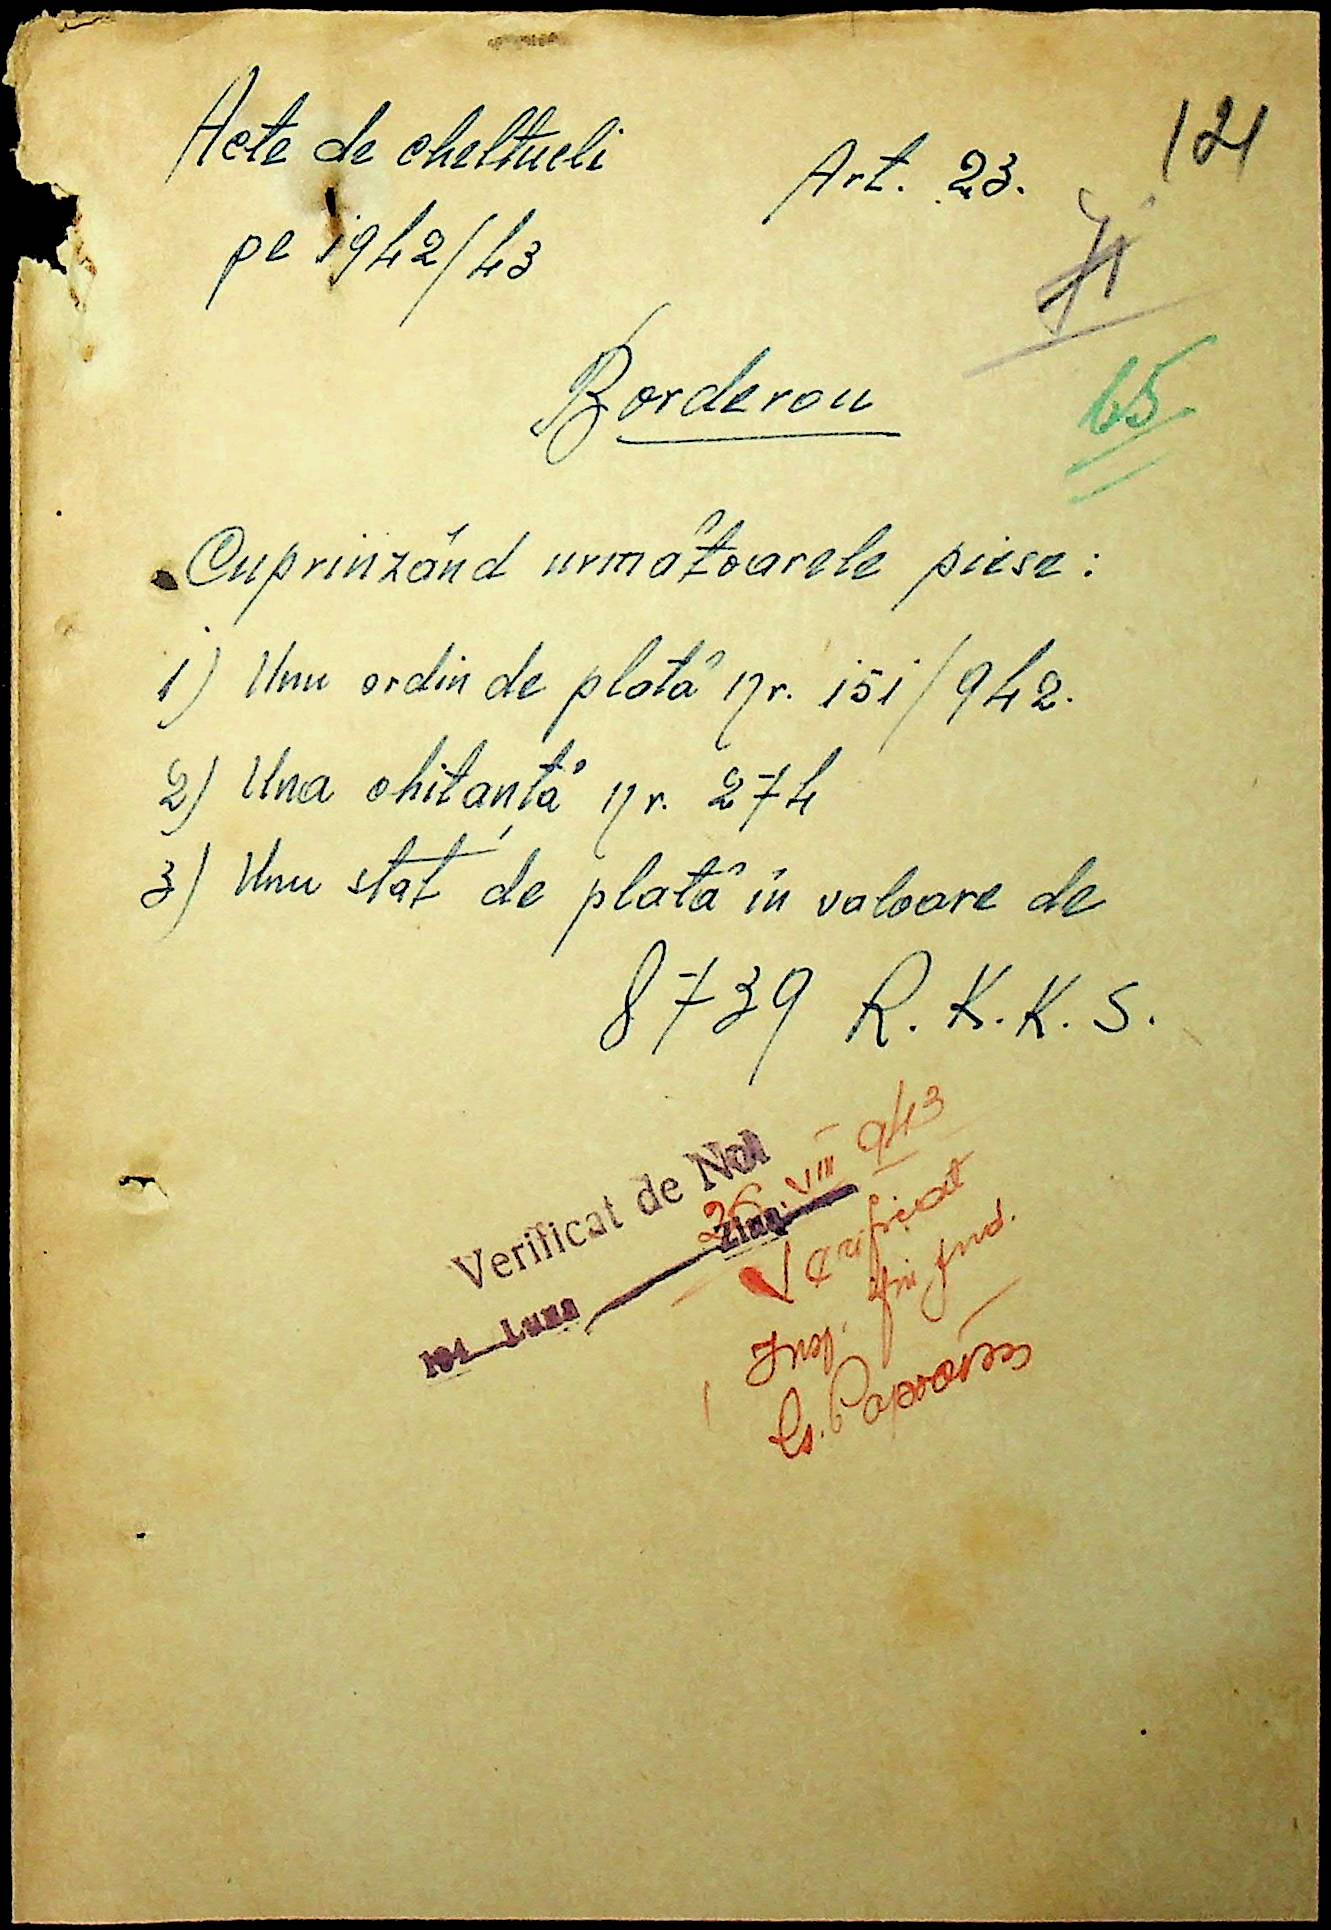 Acte de cheltueli
Art. 23.
121
pe 1942/43
71
65
Borderou
Cuprinzând următoarele piese:
1) Unu ordin de plată nr. 151/942.
2) Una chitanță nr. 274
3) Unu stat de plată în valoare de
8739 R.K.K.S.
Verificat de Noi
194 Luna Ziua
26 VIII 943
Verificat
fin jud.
Insp.
Gs. Paparotescu